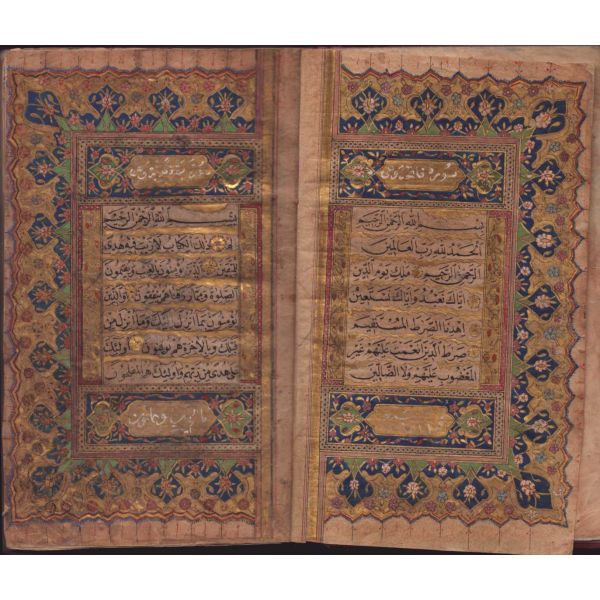 سورة فاتحة
بسم الله الرحمن الرحيم
الحمد لله رب العالمين
الرحمن الرحيم ملك يوم الدين
اياك نعبد واياك نستعين
اهدنا الصرط المستقيم
صرط الذين انعمت عليهم غير
المغضوب عليهم ولا الضالين
بسم الله الرحمن الرحيم
الم ذلك الكتاب لا ريب فيه هدى
للمتقين الذين يؤمنون بالغيب ويقيمون
الصلوة ومما رزقناهم ينفقون والذين
يؤمنون بما انزل اليك وما انزل من
قبلك وبالآخرة هم يوقنون اولئك
على هدى من ربهم واولئك هم المفلحون